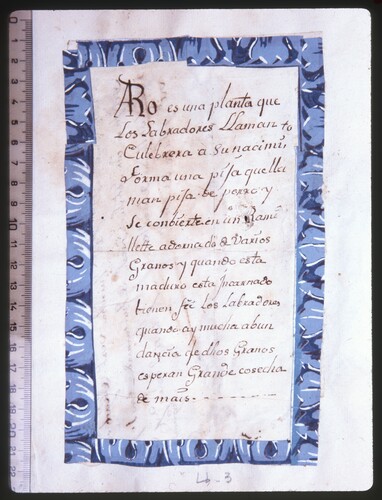 ARo es una planta que
los Labradores Llaman
Culebrera a Su nacim.to
forma una pisa que lla
man pisa de perro y
Se conbierte en un Rami
llette adornado de Varios
Granos y quando esta
maduro esta Incarnado
tienen fee los Labradores
quando ay mucha abun
dancia de dhos Granos
esperan Grande cosecha
de mais
0 1 2 3 4 5 6 7 8 9 10 11 12 13 14 15 16 17 18 19 20 21 22